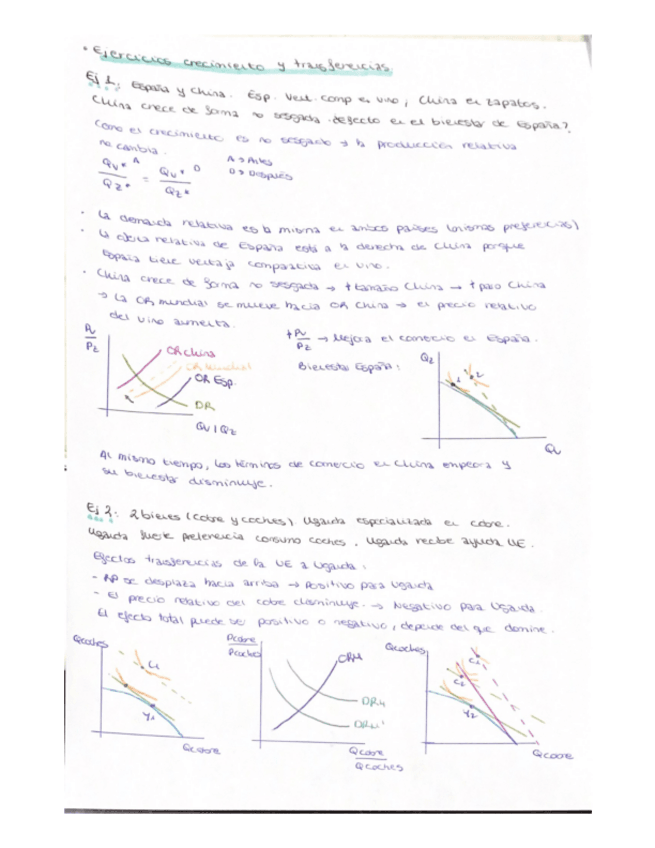 • Ejercicios crecimiento y transferencias
Ej 1: España y China. Esp. vent. comp en vino, China en zapatos.
China crece de forma no sesgada. ¿Efecto en el bienestar de España?
Como el crecimiento es no sesgado → la producción relativa
no cambia.
Qv* A / Qz* = Qv* D / Qz*
A → Antes
D → Después
• La demanda relativa es la misma en ambos países (mismas preferencias)
• La oferta relativa de España está a la derecha de China porque
España tiene ventaja comparativa en vino.
• China crece de forma no sesgada → ↑ tamaño China → ↑ peso China
→ La OR mundial se mueve hacia OR China → el precio relativo
del vino aumenta.
Pv / Pz
OR China
OR Mundial
OR Esp.
DR
Qv / Qz
↑ Pv / Pz → Mejora el comercio en España.
Bienestar España:
Qz
1
2
Qv
Al mismo tiempo, los términos de comercio en China empeora y
su bienestar disminuye.
Ej 2: 2 bienes (cobre y coches). Uganda especializada en cobre.
Uganda fuerte preferencia consumo coches. Uganda recibe ayuda UE.
Efectos transferencias de la UE a Uganda:
- RP se desplaza hacia arriba → Positivo para Uganda
- El precio relativo del cobre disminuye. → Negativo para Uganda.
El efecto total puede ser positivo o negativo, depende del que domine.
Qcoches
C1
Y1
Qcobre
Pcobre / Pcoches
ORM
DRM
DRM'
Qcobre / Qcoches
Qcoches
C1
C2
Y2
Qcobre